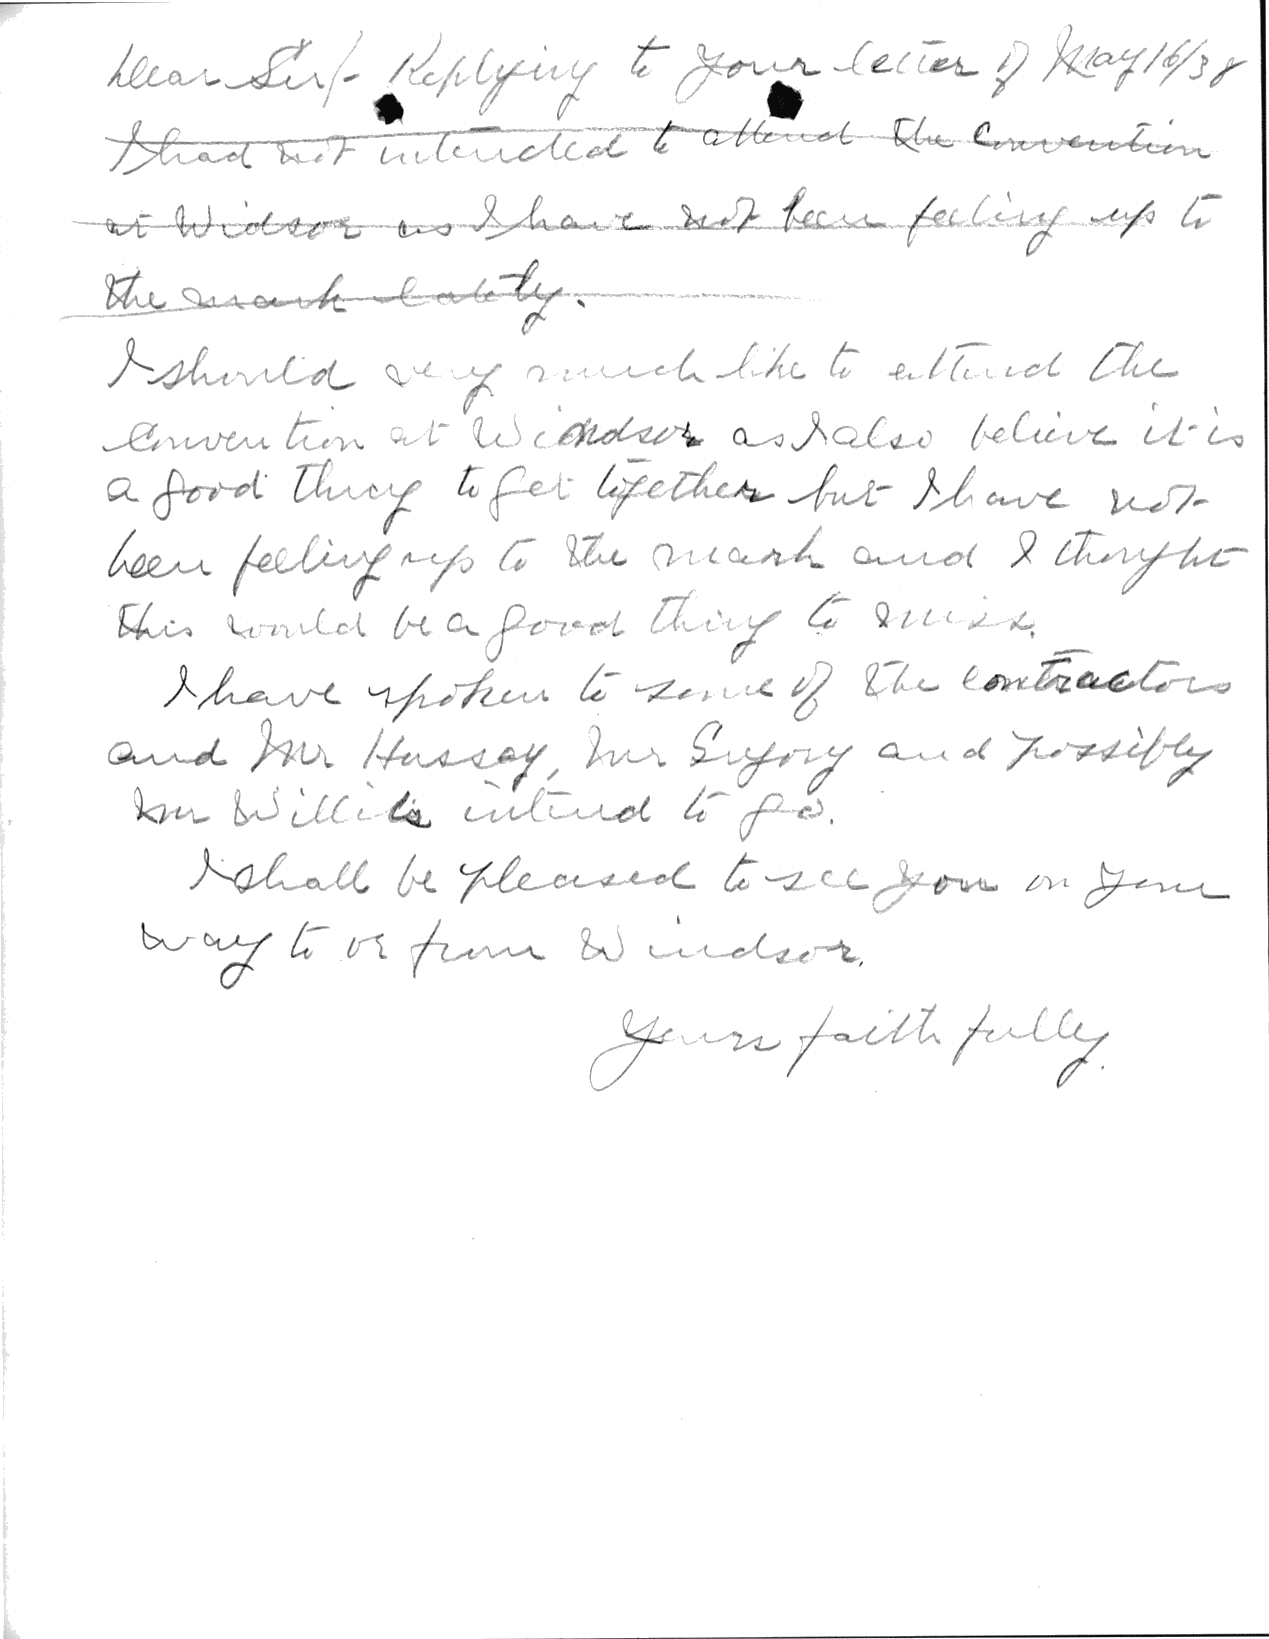 Dear Sir/- Replying to your letter of May 16/38
I had not intended to attend the Convention
at Widsor as I have not been feeling up to
the mark lately.
I should very much like to attend the
Convention at Windsor as I also believe it is
a good thing to get together but I have not
been feeling up to the mark and I thought
this would be a good thing to miss.
I have spoken to some of the contractors
and Mr Hussey, Mr Gregory and possibly
Mr Willits intend to go.
I shall be pleased to see you on your
way to or from Windsor.
Yours faithfully.